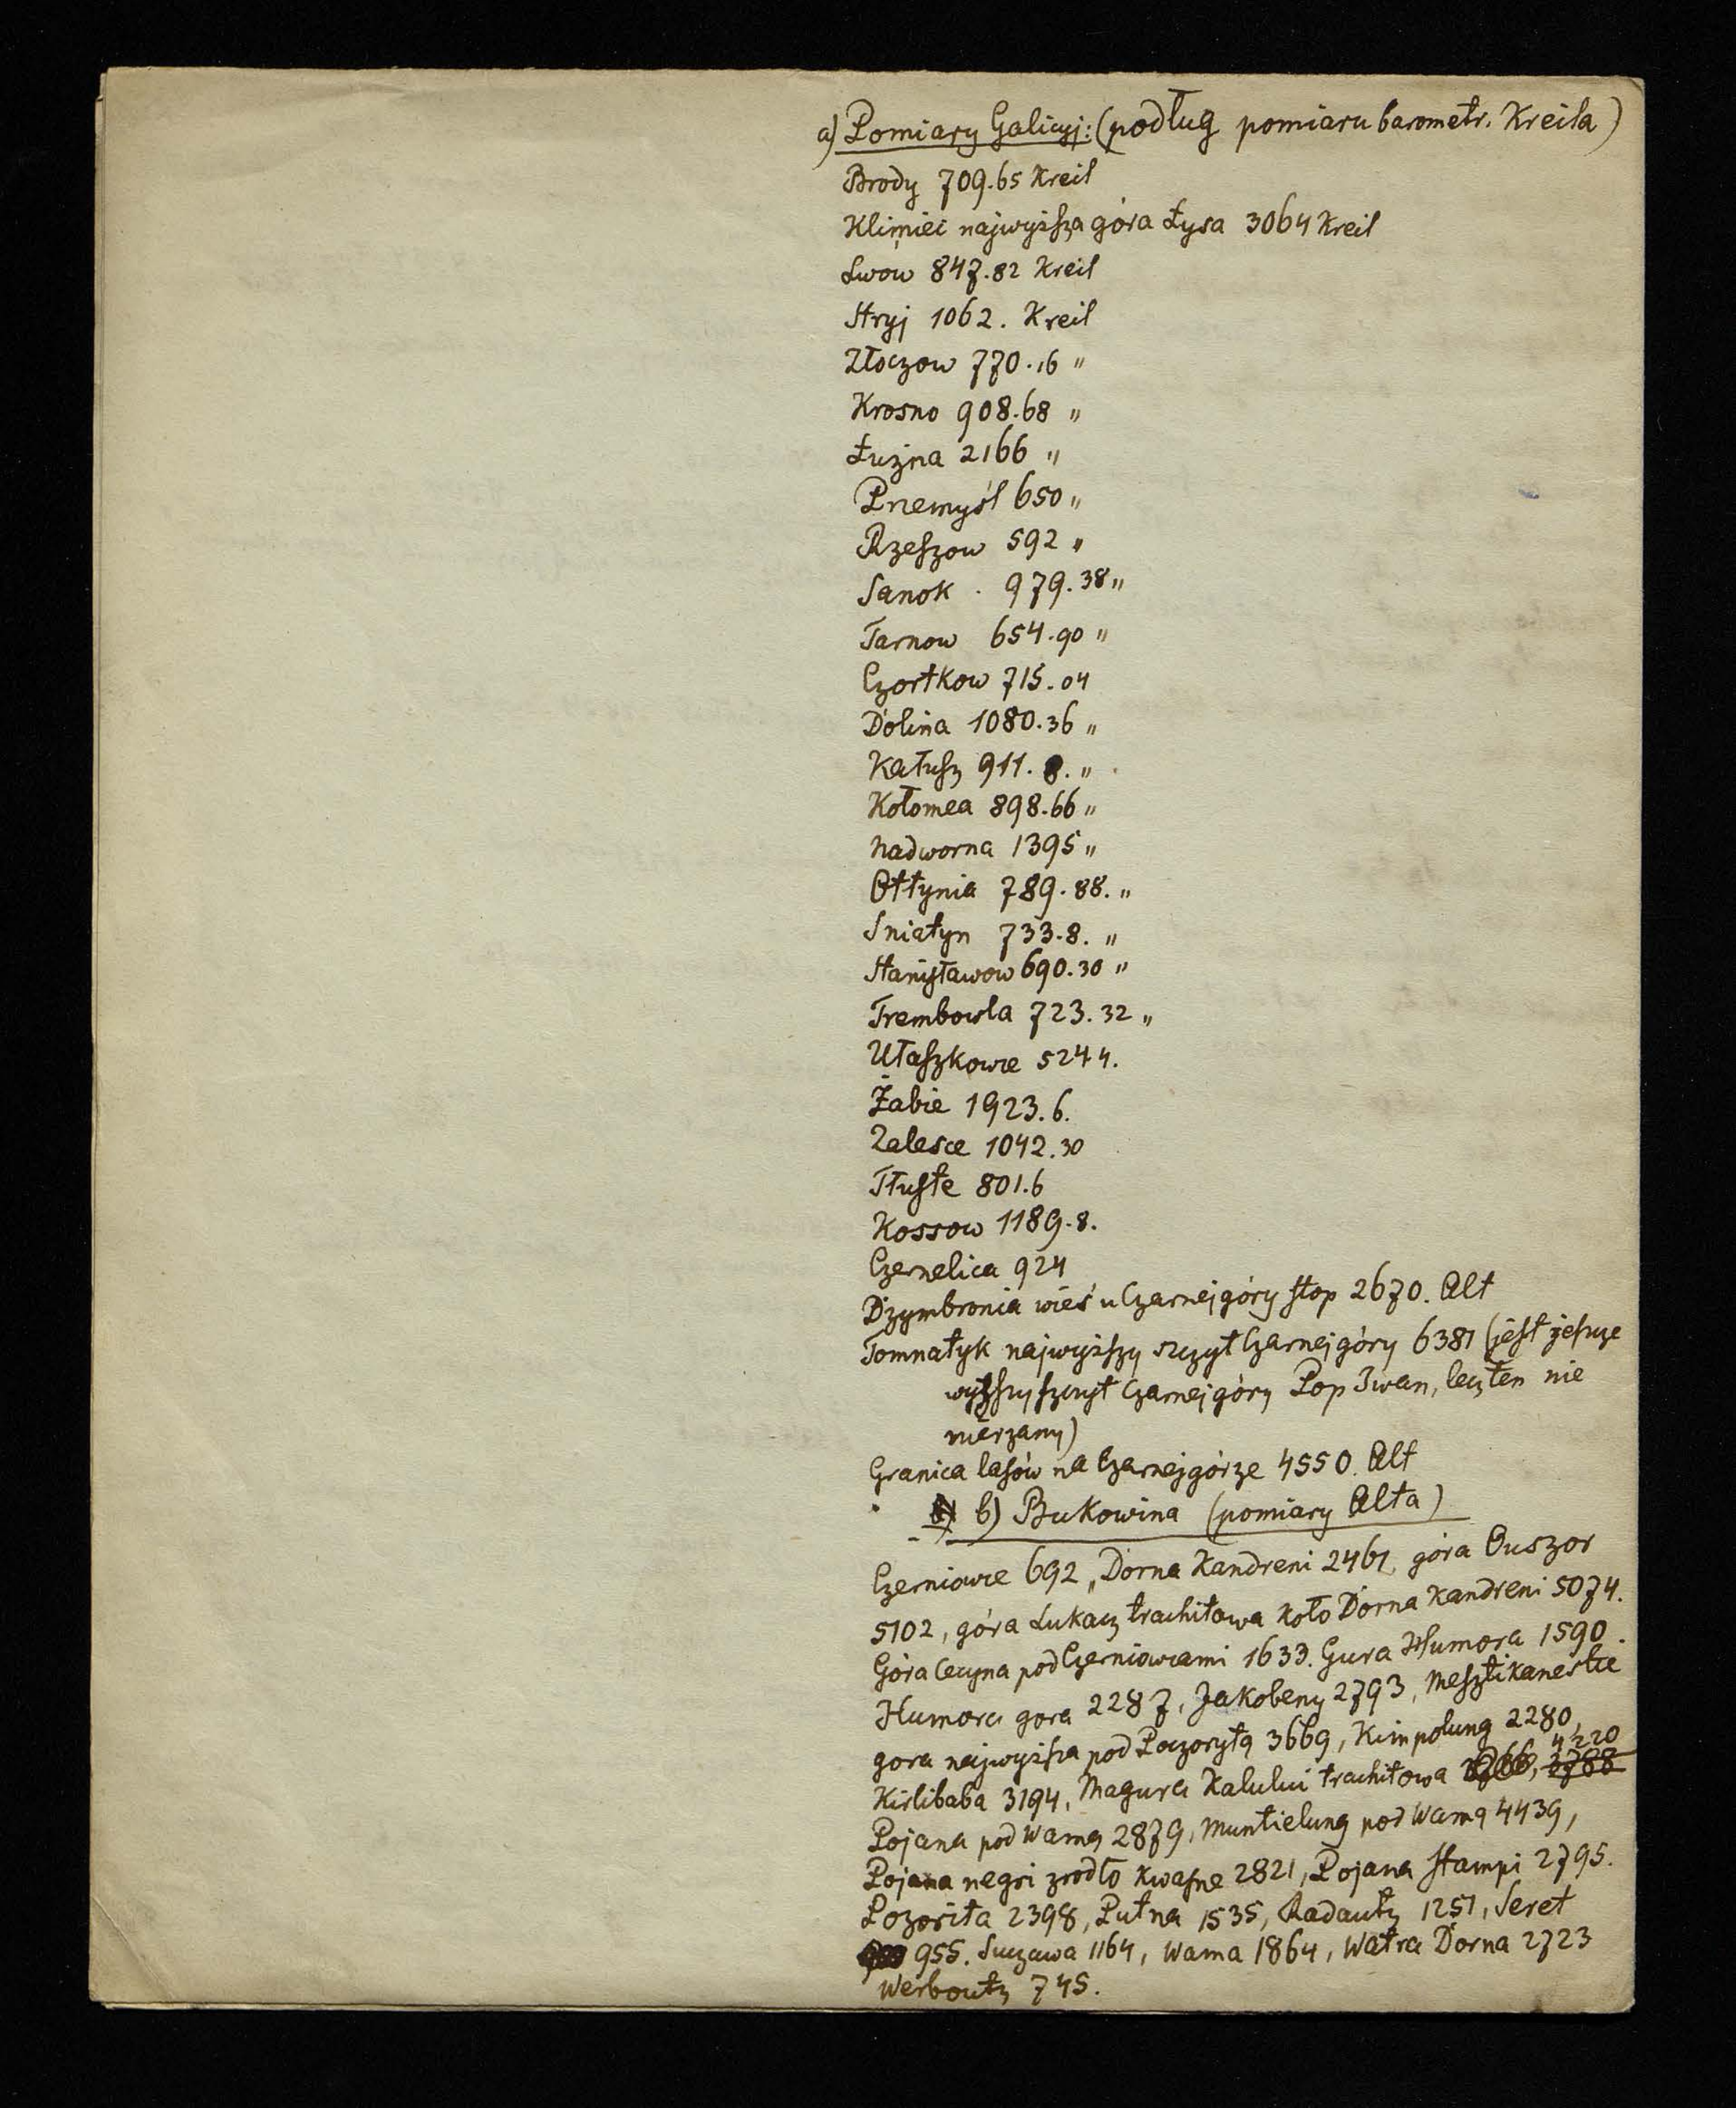 a) Pomiary Galicyj: (podług pomiaru barometr. Kreila)
Brody 709.65 Kreil
Klimiec najwyższa góra Łysa 3064 Kreil
Lwow 847.82 Kreil
Stryj 1062. Kreil
Złoczow 770.16 "
Krosno 908.68 "
Łużna 2166 "
Przemyśl 650 "
Rzeszow 592 "
Sanok . 979.38 "
Tarnow 654.90 "
Czortkow 715.04
Dolina 1080.36 "
Kałusz 911.8. "
Kołomea 898.66 "
Nadworna 1395 "
Ottynia 789.88. "
Sniatyn 733.8. "
Stanisławow 690.30 "
Trembowla 723.32 "
Ułaszkowce 524 4.
Żabie 1923.6.
Zalesce 1042.30
Tłuste 801.6
Kossow 1189.8.
Czernelica 924
Dzymbronia wieś u Czarnej góry stop 2670. Alt
Tomnatyk najwyższy szczyt Czarnej góry 6381 (jest jeszcze
wyższy szczyt Czarnej góry Pop Iwan, lecz ten nie
mierzany)
Granica lasów na Czarnej górze 4550. Alt
b) Bukowina (pomiary Alta)
Czerniowce 692, Dorna Kandreni 2461, góra Ouszor
5102, góra Lukacz trachitowa koło Dorna Kandreni 5074.
Góra Cecyna pod Czerniowcami 1633. Gura Humora 1590.
Humora gora 2287, Jakobeny 2793, Mesztikanestie
gora najwyższa pod Poczorytą 3669, Kimpolung 2280,
Kirlibaba 3194, Magura Kalului trachitowa 3788 4220
Pojana pod Wamą 2879, Muntielung pod Wamą 4439,
Pojana negri zrodło kwasne 2821, Pojana Stampi 2795.
Pozorita 2398, Putna 1535, Radautz 1251, Seret
955. Suczawa 1164, Wama 1864, Watra Dorna 2723
Werboutz 745.